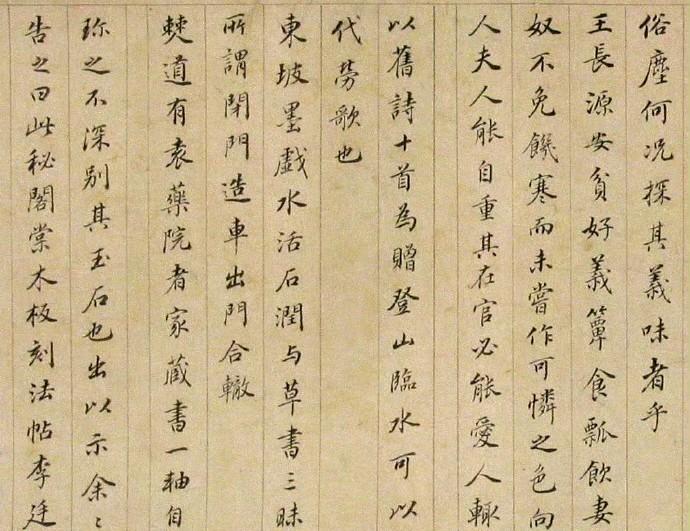 俗塵何况探其義味者乎
王長源安貧好義簞食瓢飲妻
奴不免饑寒而未嘗作可憐之色向
人夫人能自重其在官必能愛人輒
以舊詩十首為贈登山臨水可以
代勞歌也
東坡墨戲水活石潤与草書三昧
所謂閉門造車出門合轍
僰道有袁藥院者家蔵書一軸自
珎之不深别其玉石也出以示余〻
告之曰此秘閣棠木板刻法帖李廷